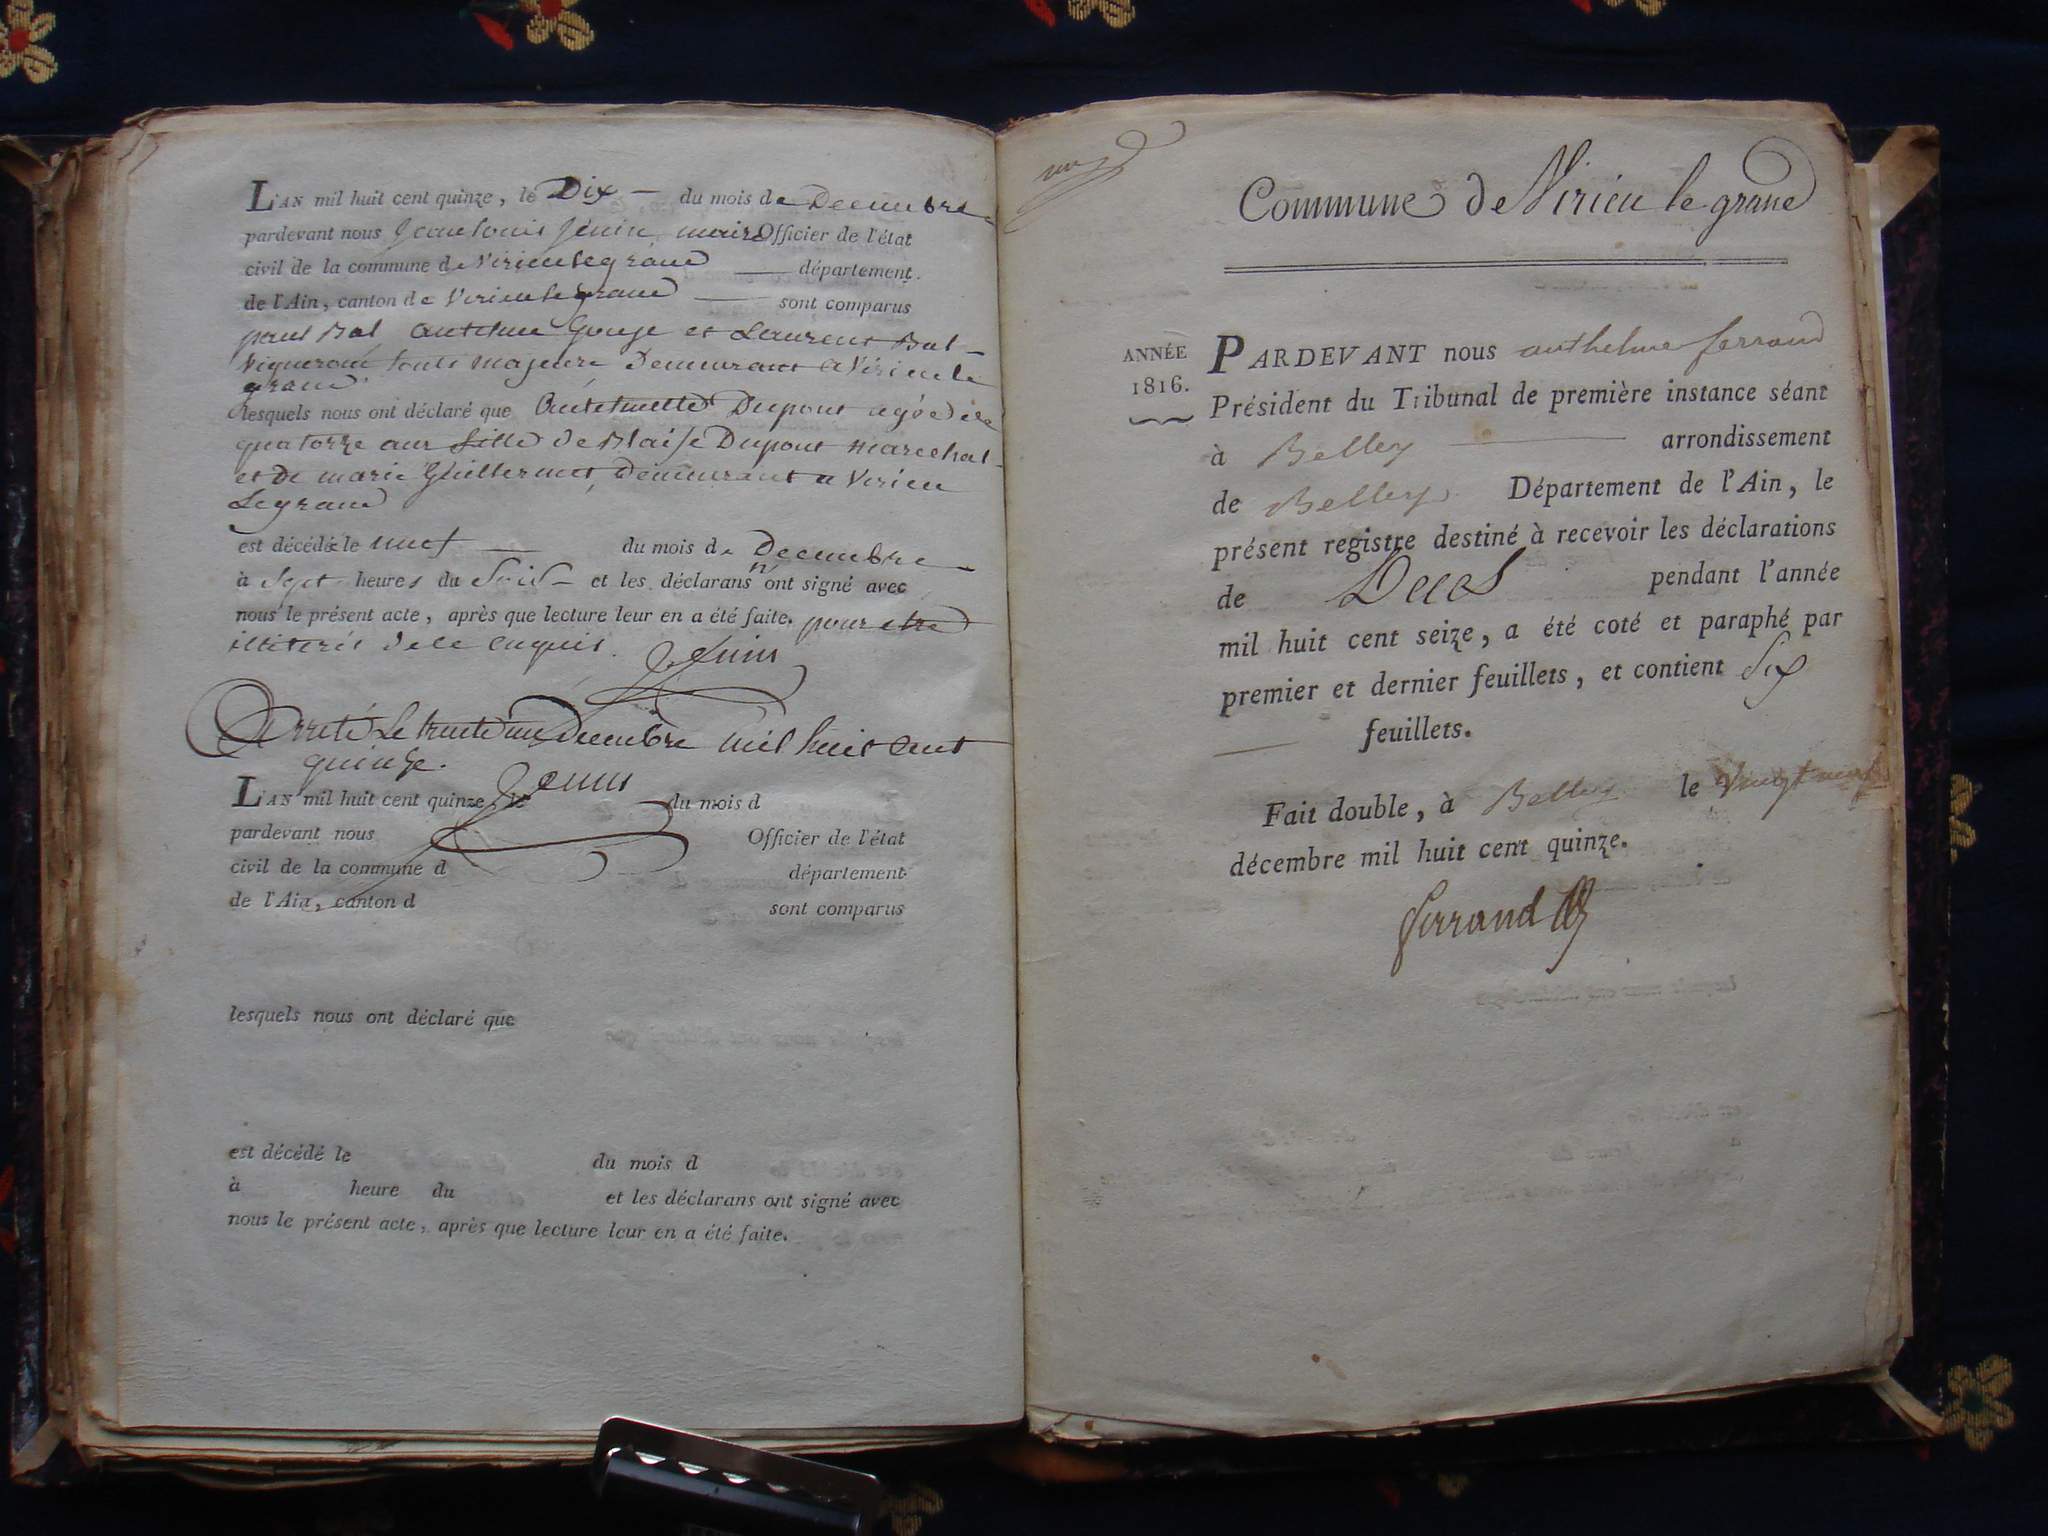 L'AN mil huit cent quinze, le Dix — du mois de Decembre
pardevant nous Jean louis Jenin maire Officier de l'état
civil de la commune de Virieu le grand — département
de l'Ain, canton de Virieu le grand — sont comparus
paul Bal Antelme Gouje et Laurent Bal
vignerons touts majeurs Demeurant a Virieu le
grand
lesquels nous ont déclaré que Antelmette Dupont agée de
quatorze ans fille de Blaise Dupont marechal
et De marie Guillermet, Demeurant a Virieu
Legrand
est décédée le neuf — du mois de Decembre
à Sept heures du Soir — et les déclarans n'ont signé avec
nous le présent acte, après que lecture leur en a été faite. pour etre
illiterés de ce enquis.
Jenin
Arreté Le trente un Decembre mil huit Cent
quinze.
Jenin
L'AN mil huit cent quinze, le du mois d
pardevant nous Officier de l'état
civil de la commune d département
de l'Ain, canton d sont comparus
lesquels nous ont déclaré que
est décédé le du mois d
à heure du et les déclarans ont signé avec
nous le présent acte, après que lecture leur en a été faite.
Commune de Virieu le grand
ANNÉE
1816.
PARDEVANT nous anthelme ferrand
Président du Tribunal de première instance séant
à Belley — arrondissement
de Belley Département de l'Ain, le
présent registre destiné à recevoir les déclarations
de Deces pendant l'année
mil huit cent seize, a été coté et paraphé par
premier et dernier feuillets, et contient Six
— feuillets.
Fait double, à Belley le vingt neuf
décembre mil huit cent quinze.
Ferrand